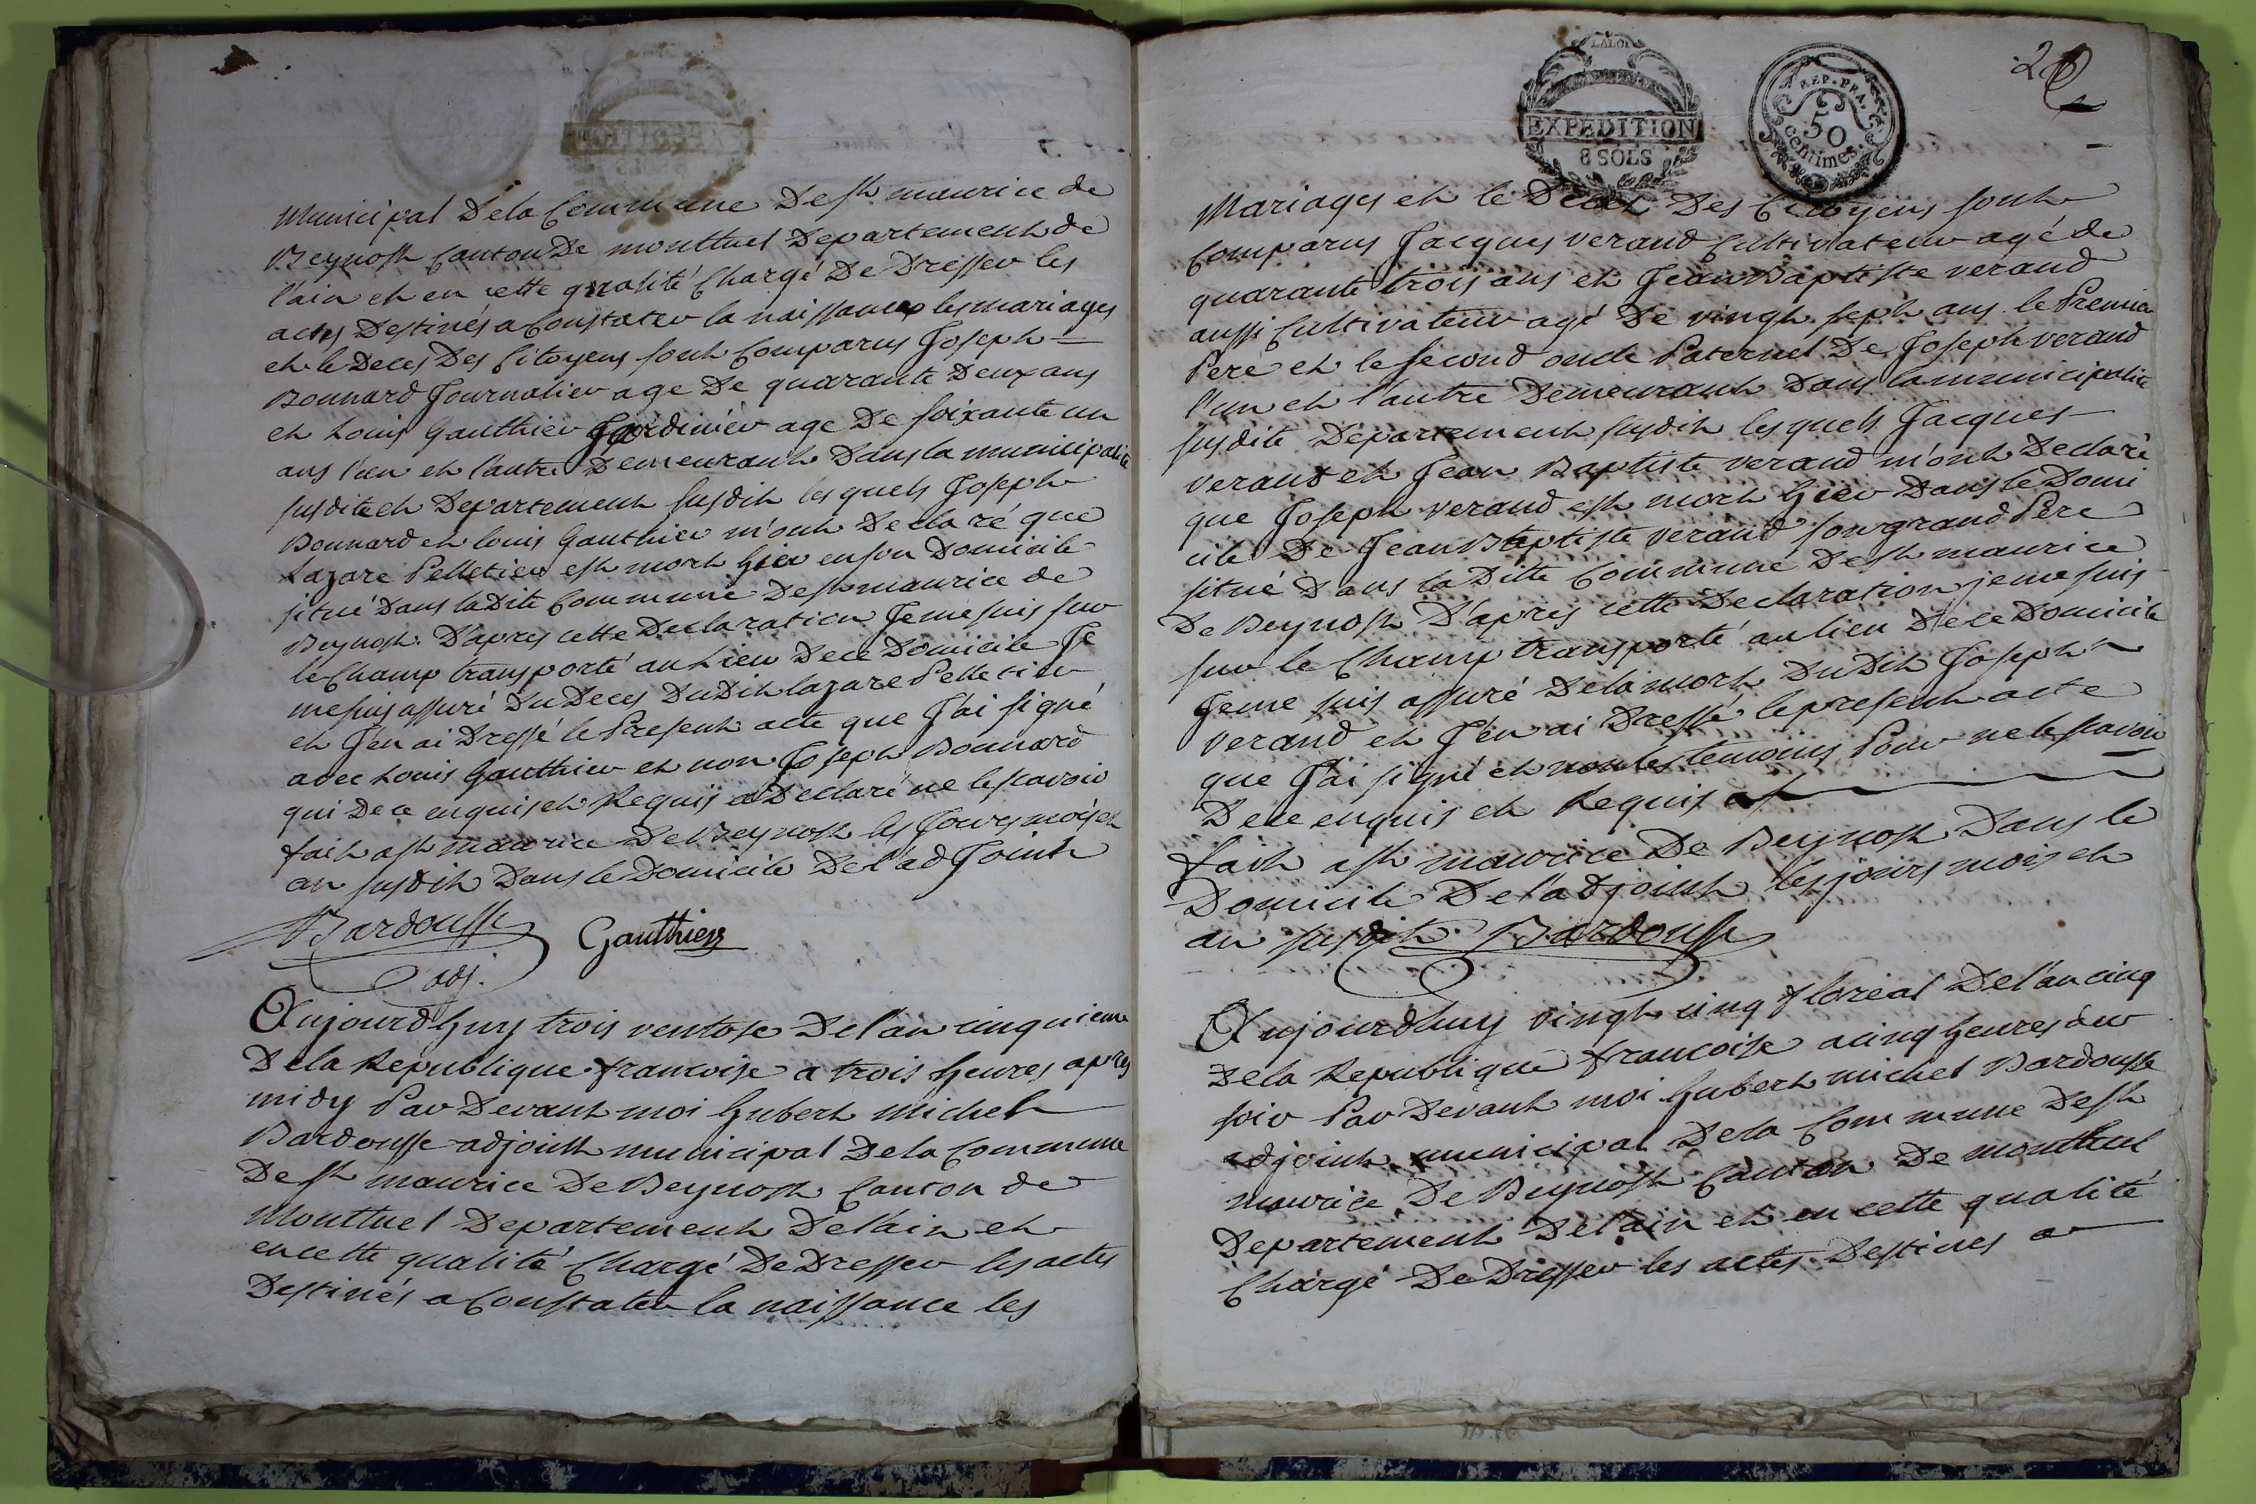 Municipal Dela Commune De st maurice de
Beynost Canton De montluel Departement de
l'ain et en cette qualité Chargé De Dresser les
actes Destinés a Constater la naissance les mariages
et le Deces Des Citoyens sont Comparus Joseph
Bonnard Journalier age De quarante Deux ans
et Louis Gauthier Jardinier age De soixante un
ans l'un et l'autre Demeurant Dans la municipalité
susdite et Departement susdit lesquels Joseph
Bonnard et louis Gauthier m'ont Declaré que
Lazare Pelletier est mort hier en son Domicile
situé Dans ladite Commune De st maurice de
Beynost. D'apres cette Declaration Je me suis sur
le Champ transporté au Lieu De ce Domicile Je
me suis assuré Du Deces Dudit lazare Pelletier
et J'en ai Dressé le Present acte que J'ai signé
avec Louis Gauthier et non Joseph Bonnard
qui De ce enquis et Requis a Declaré ne le scavoir
fait a st maurice De Beynost les Jours mois et
an susdit Dans le Domicile De l'adJoint
Bardousse Gauthier
adj.
Aujourdhuy trois ventose De l'an cinquieme
De la Republique francoise a trois heures apres
midy Par Devant moi hubert michel
Bardousse adjoint municipal Dela Commune
De st maurice De Beynost Canton de
Montluel Departement De l'ain et
en cette qualité Chargé De Dresser les actes
Destinés a Constater la naissance les
LALOI
EXPEDITION
8 SOLS
REP. FRA.
50
centimes.
Mariages et le Deces Des Citoyens sont
Comparus Jacques verand Cultivateur agé de
quarante trois ans et Jean Baptiste verand
aussi Cultivateur agé De vingt sept ans le Premier
Pere et le second oncle Paternel De Joseph verand
l'un et l'autre Demeurant Dans la municipalité
susdite Departement susdit lesquels Jacques
verand et Jean Baptiste verand m'ont Declaré
que Joseph verand est mort hier Dans le Domi
cile De Jean Baptiste verand son grand Pere
situé Dans la Ditte Commune De st maurice
De Beynost D'apres cette Declaration je me suis
sur le Champ transporté au lieu De ce Domicile
Je me suis assuré Dela mort Du Dit Joseph
verand et J'en ai Dressé le present acte
que J'ai signé et non les temoins Pour ne le scavoir
De ce enquis et Requis
fait a st maurice De Beynost Dans le
Domicile De l'adjoint les jours mois et
an susdit Bardousse
Aujourdhuy vingt cinq floreal De l'an cinq
De la Republique francoise a cinq heures du
soir Par Devant moi hubert michel Bardousse
adjoint municipal Dela Commune De st
maurice De Beynost Canton De montluel
Departement De l'ain et en cette qualité
Chargé De Dresser les actes Destinés a